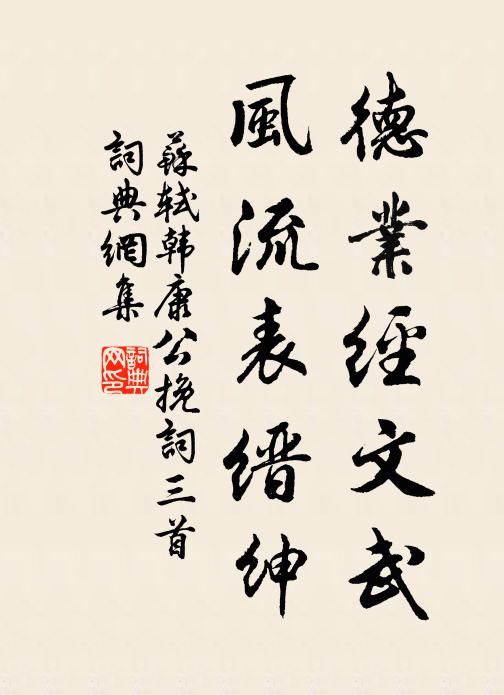 德業經文武
風流表縉紳
蘇軾韩康公挽詞三首
詞典網集
詞典网印